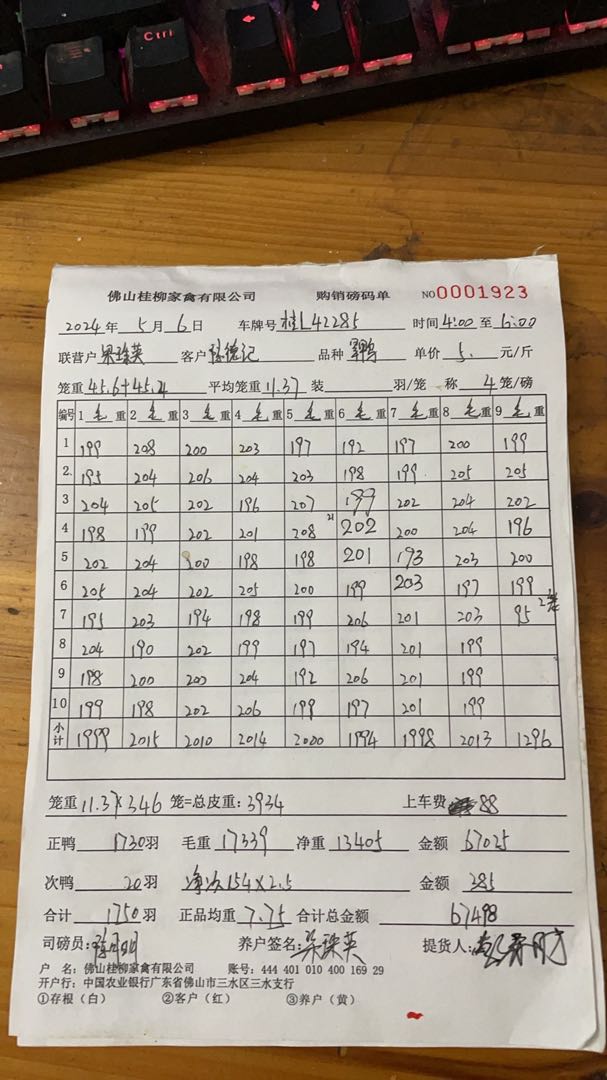 Ctrl
佛山桂柳家禽有限公司 购销磅码单 NO 0001923
2024年 5月 6日 车牌号 桂L42285 时间 4:00 至 6:00
联营户 梁珠英 客户 陈德记 品种 单价 5. 元/斤
笼重 45.6+45.4 平均笼重 11.37 装 羽/笼 称 4 笼/磅
编号 1 毛 重 2 毛 重 3 毛 重 4 毛 重 5 毛 重 6 毛 重 7 毛 重 8 毛 重 9 毛 重
1 199 208 200 203 197 192 197 200 199
2. 195 204 206 204 203 198 199 205 205
3 204 205 202 196 207 199 202 204 202
4 198 199 202 201 208 21 202 200 204 196
5 202 204 200 198 198 201 193 203 200
6 205 204 202 205 200 199 203 197 199
7 195 203 194 198 199 206 201 203 95 2笼
8 204 190 202 199 197 194 201 199
9 198 200 200 204 192 206 201 199
10 199 198 202 206 199 197 201 199
小计 1999 2015 2010 2014 2000 1994 1998 2013 1296
笼重 11.37×346 笼=总皮重: 3934 上车费 88
正鸭 1730 羽 毛重 17339 净重 13405 金额 67025
次鸭 20 羽 净次154×2.5 金额 385
合计 1750 羽 正品均重 7.75 合计总金额 67498
司磅员: 养户签名: 梁珠英 提货人:
户 名: 佛山桂柳家禽有限公司 账号: 444 401 010 400 169 29
开户行: 中国农业银行广东省佛山市三水区三水支行
①存根（白） ②客户（红） ③养户（黄）